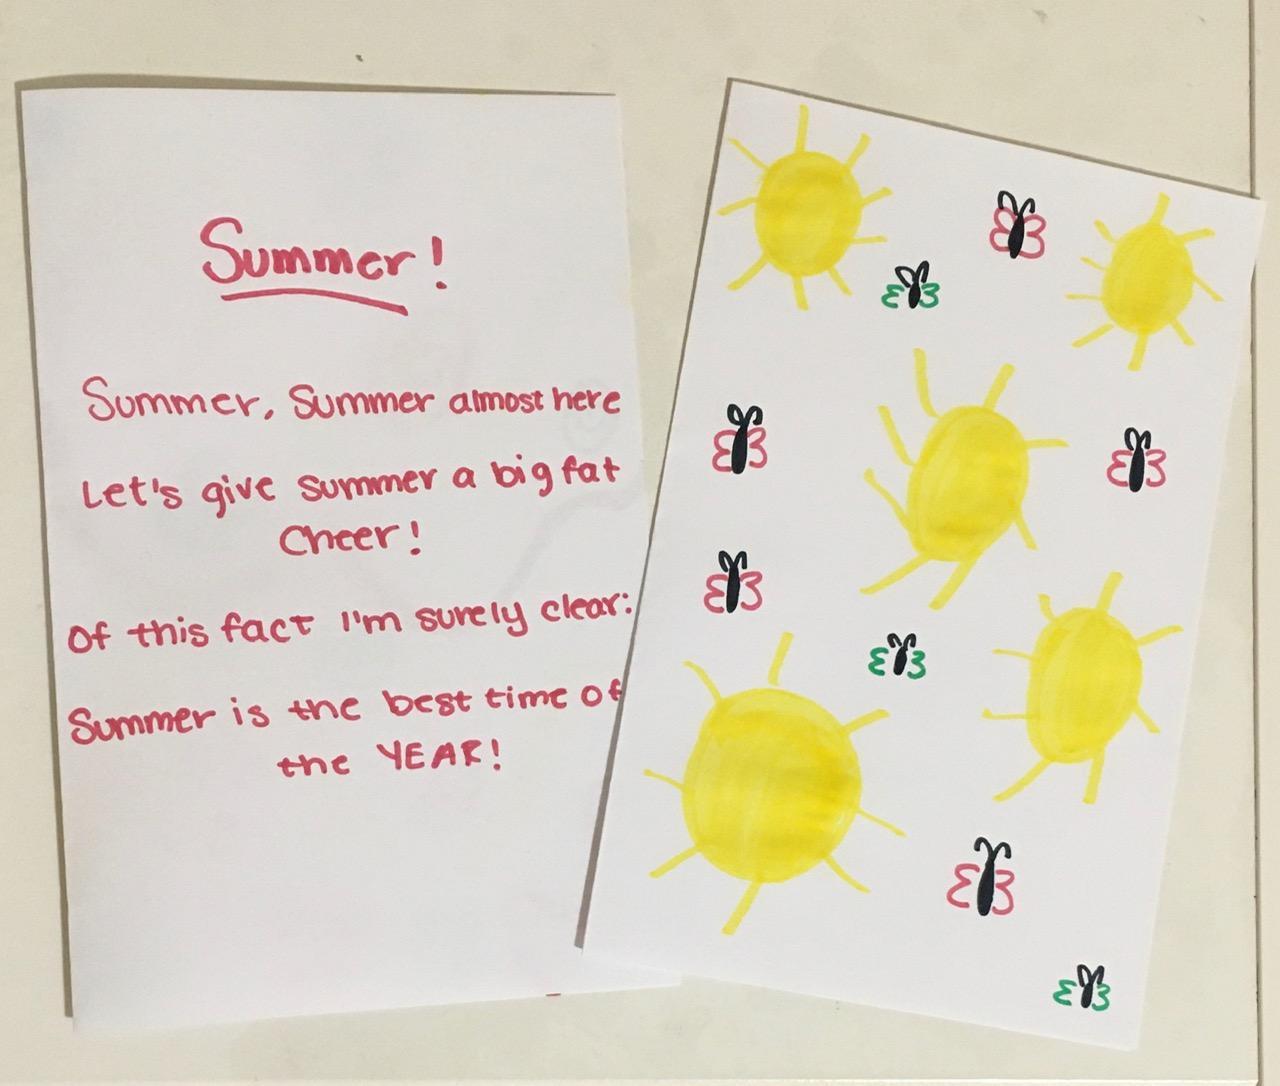 Summer!
Summer, Summer almost here
Let's give summer a big fat
Cheer!
Of this fact I'm surely clear:
Summer is the best time of
the YEAR!